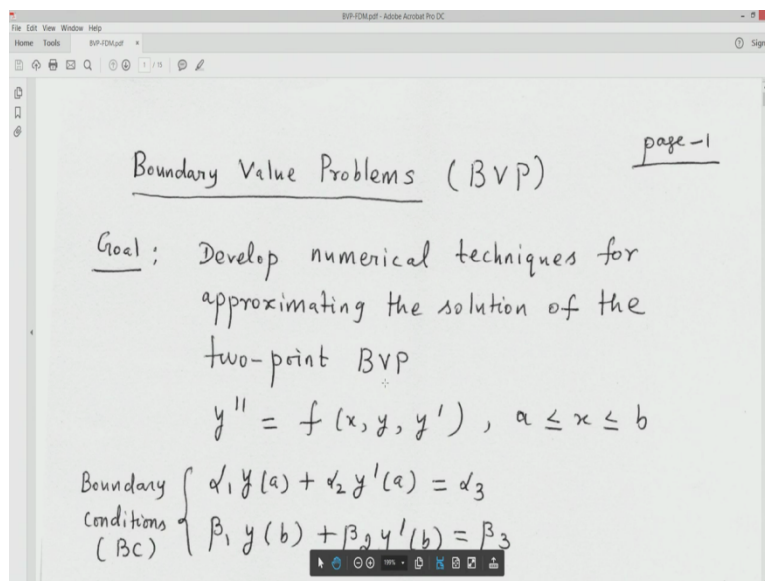 BVP-FDM.pdf - Adobe Acrobat Pro DC
File Edit View Window Help
Home Tools BVP-FDM.pdf × Sign
1 / 15
page-1
Boundary Value Problems (BVP)
Goal : Develop numerical techniques for
approximating the solution of the
two-point BVP
y'' = f(x, y, y') , a ≤ x ≤ b
Boundary α₁ y(a) + α₂ y'(a) = α₃
Conditions
(BC) β₁ y(b) + β₂ y'(b) = β₃
199%